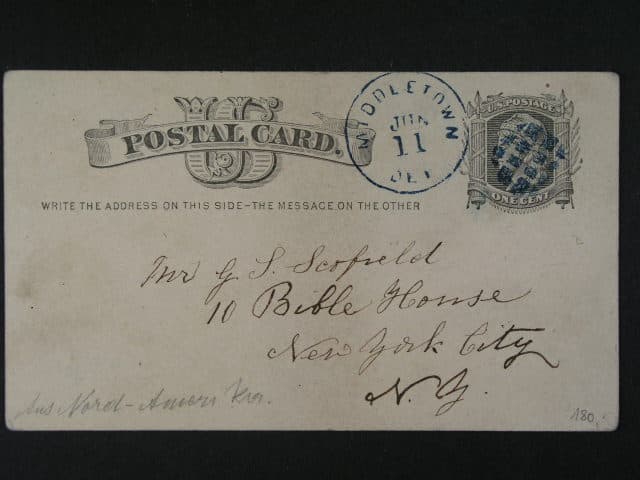 US
POSTAL CARD.
WRITE THE ADDRESS ON THIS SIDE-THE MESSAGE ON THE OTHER
MIDDLETOWN
JUN
11
DEL
U.S. POSTAGE
ONE CENT
Mr G. S. Scofield
10 Bible House
New York City
N. Y.
Aus Nord-Amerika.
180.